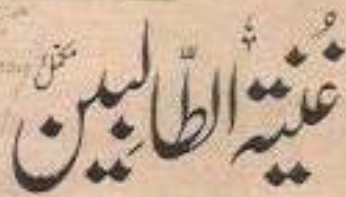 غُنیۃ الطّالِبین مکمل